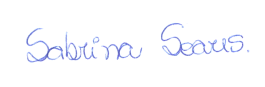 Sabrina Searis.